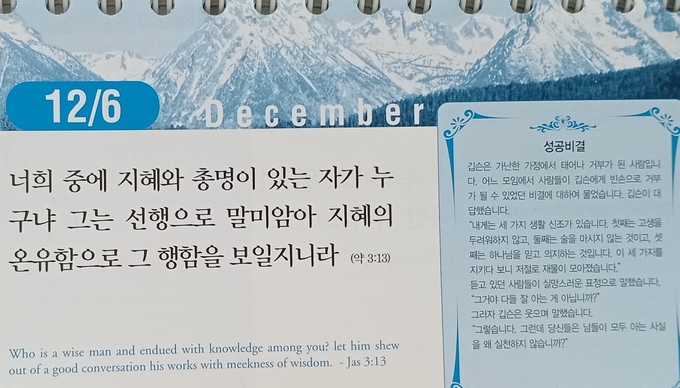 12/6
December
너희 중에 지혜와 총명이 있는 자가 누
구냐 그는 선행으로 말미암아 지혜의
온유함으로 그 행함을 보일지니라 (약 3:13)
Who is a wise man and endued with knowledge among you? let him shew
out of a good conversation his works with meekness of wisdom. - Jas 3:13
성공비결
깁슨은 가난한 가정에서 태어나 거부가 된 사람입니
다. 어느 모임에서 사람들이 깁슨에게 빈손으로 거부
가 될 수 있었던 비결에 대하여 물었습니다. 깁슨이 대
답했습니다.
"내게는 세 가지 생활 신조가 있습니다. 첫째는 고생을
두려워하지 않고, 둘째는 술을 마시지 않는 것이고, 셋
째는 하나님을 믿고 의지하는 것입니다. 이 세 가지를
지키다 보니 저절로 재물이 모아졌습니다."
듣고 있던 사람들이 실망스러운 표정으로 말했습니다.
"그거야 다들 잘 아는 게 아닙니까?"
그러자 깁슨은 웃으며 말했습니다.
"그렇습니다. 그런데 당신들은 남들이 모두 아는 사실
을 왜 실천하지 않습니까?"